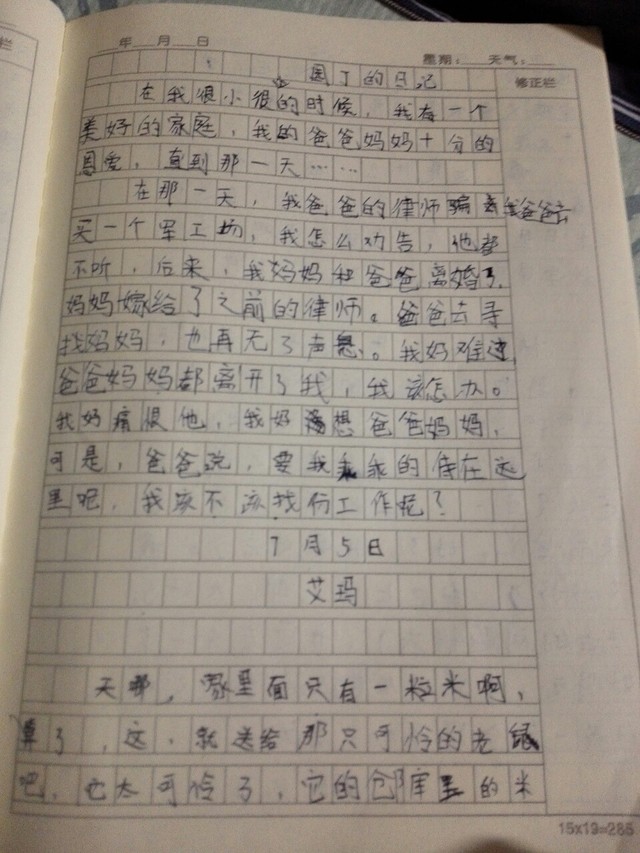 年 月 日
星期： 天气：
修正栏
栏
园丁的日记
在我很小很的时候，我有一个
美好的家庭，我的爸爸妈妈十分的
恩爱，直到那一天……
在那一天，我爸爸的律师骗我爸爸去
买一个军工场，我怎么劝告，他都
不听，后来，我妈妈和爸爸离婚了，
妈妈嫁给了之前的律师。爸爸去寻
找妈妈，也再无了声息。我好难过，
爸爸妈妈都离开了我，我该怎办。
我好痛恨他，我好想爸爸妈妈，
可是，爸爸说，要我乖乖的待在这
里呢，我该不该找份工作呢？
7月5日
艾玛
天哪，家里面只有一粒米啊，
算了，这，就送给那只可怜的老鼠
吧，它太可怜了，它的仓库里的米
15x19=285